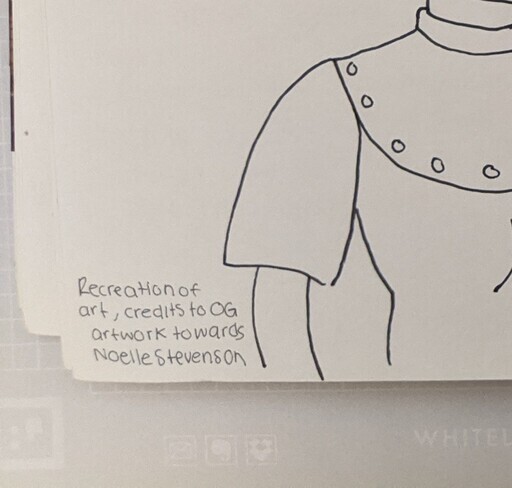 Recreation of
art, credits to OG
artwork towards
Noelle Stevenson
WHITEL